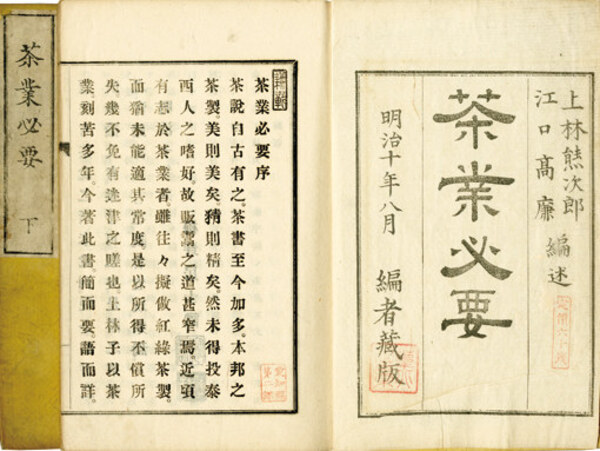 上林熊次郎
江口高廉 編述
茶業必要
明治十年八月 編者藏版
茶業必要序
茶說自古有之。茶書至今加多。本邦之
茶製美則美矣。精則精矣。然未得投泰
西人之嗜好故販鬻之道甚窄焉。近頃
有志於茶業者。雖往々擬倣紅綠茶製。
而猶未能適其常度。是以所得不償所
失幾不免有迷津之嗟也。上林子以茶
業刻苦多年。今著此書簡而要語而詳。
茶業必要 下